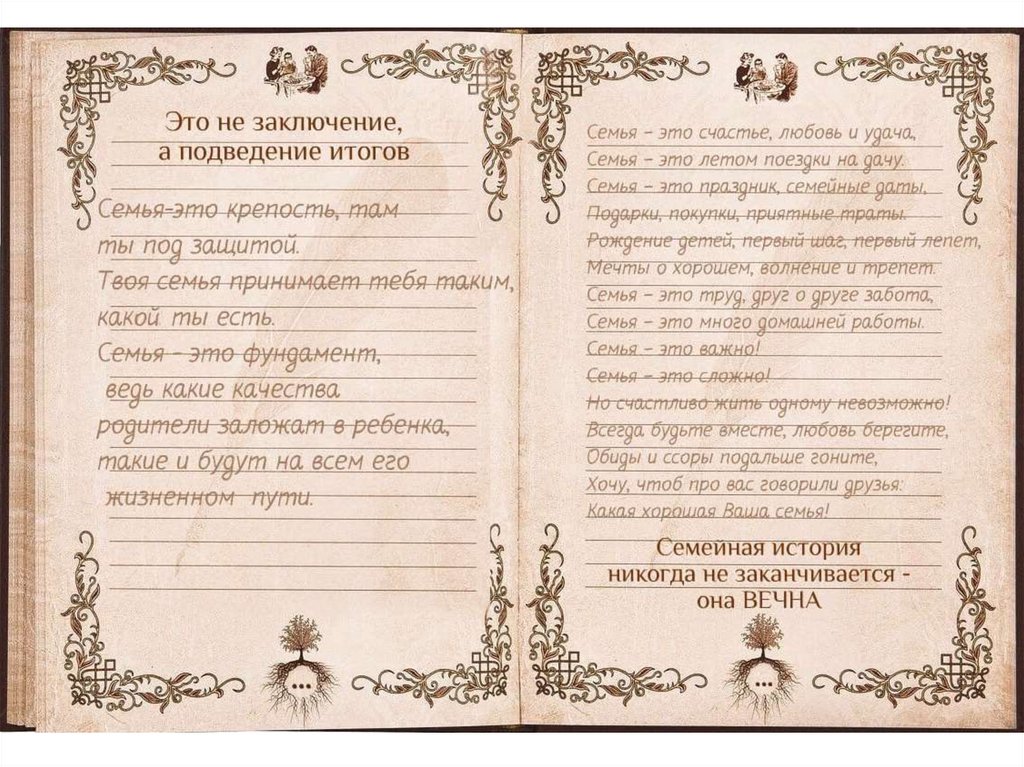 Это не заключение,
а подведение итогов
Семья-это крепость, там
ты под защитой.
Твоя семья принимает тебя таким,
какой ты есть.
Семья - это фундамент,
ведь какие качества
родители заложат в ребенка,
такие и будут на всем его
жизненном пути.
Семья – это счастье, любовь и удача,
Семья – это летом поездки на дачу.
Семья – это праздник, семейные даты,
Подарки, покупки, приятные траты.
Рождение детей, первый шаг, первый лепет,
Мечты о хорошем, волнение и трепет.
Семья – это труд, друг о друге забота,
Семья – это много домашней работы.
Семья – это важно!
Семья – это сложно!
Но счастливо жить одному невозможно!
Всегда будьте вместе, любовь берегите,
Обиды и ссоры подальше гоните,
Хочу, чтоб про вас говорили друзья:
Какая хорошая Ваша семья!
Семейная история
никогда не заканчивается -
она ВЕЧНА
...
...